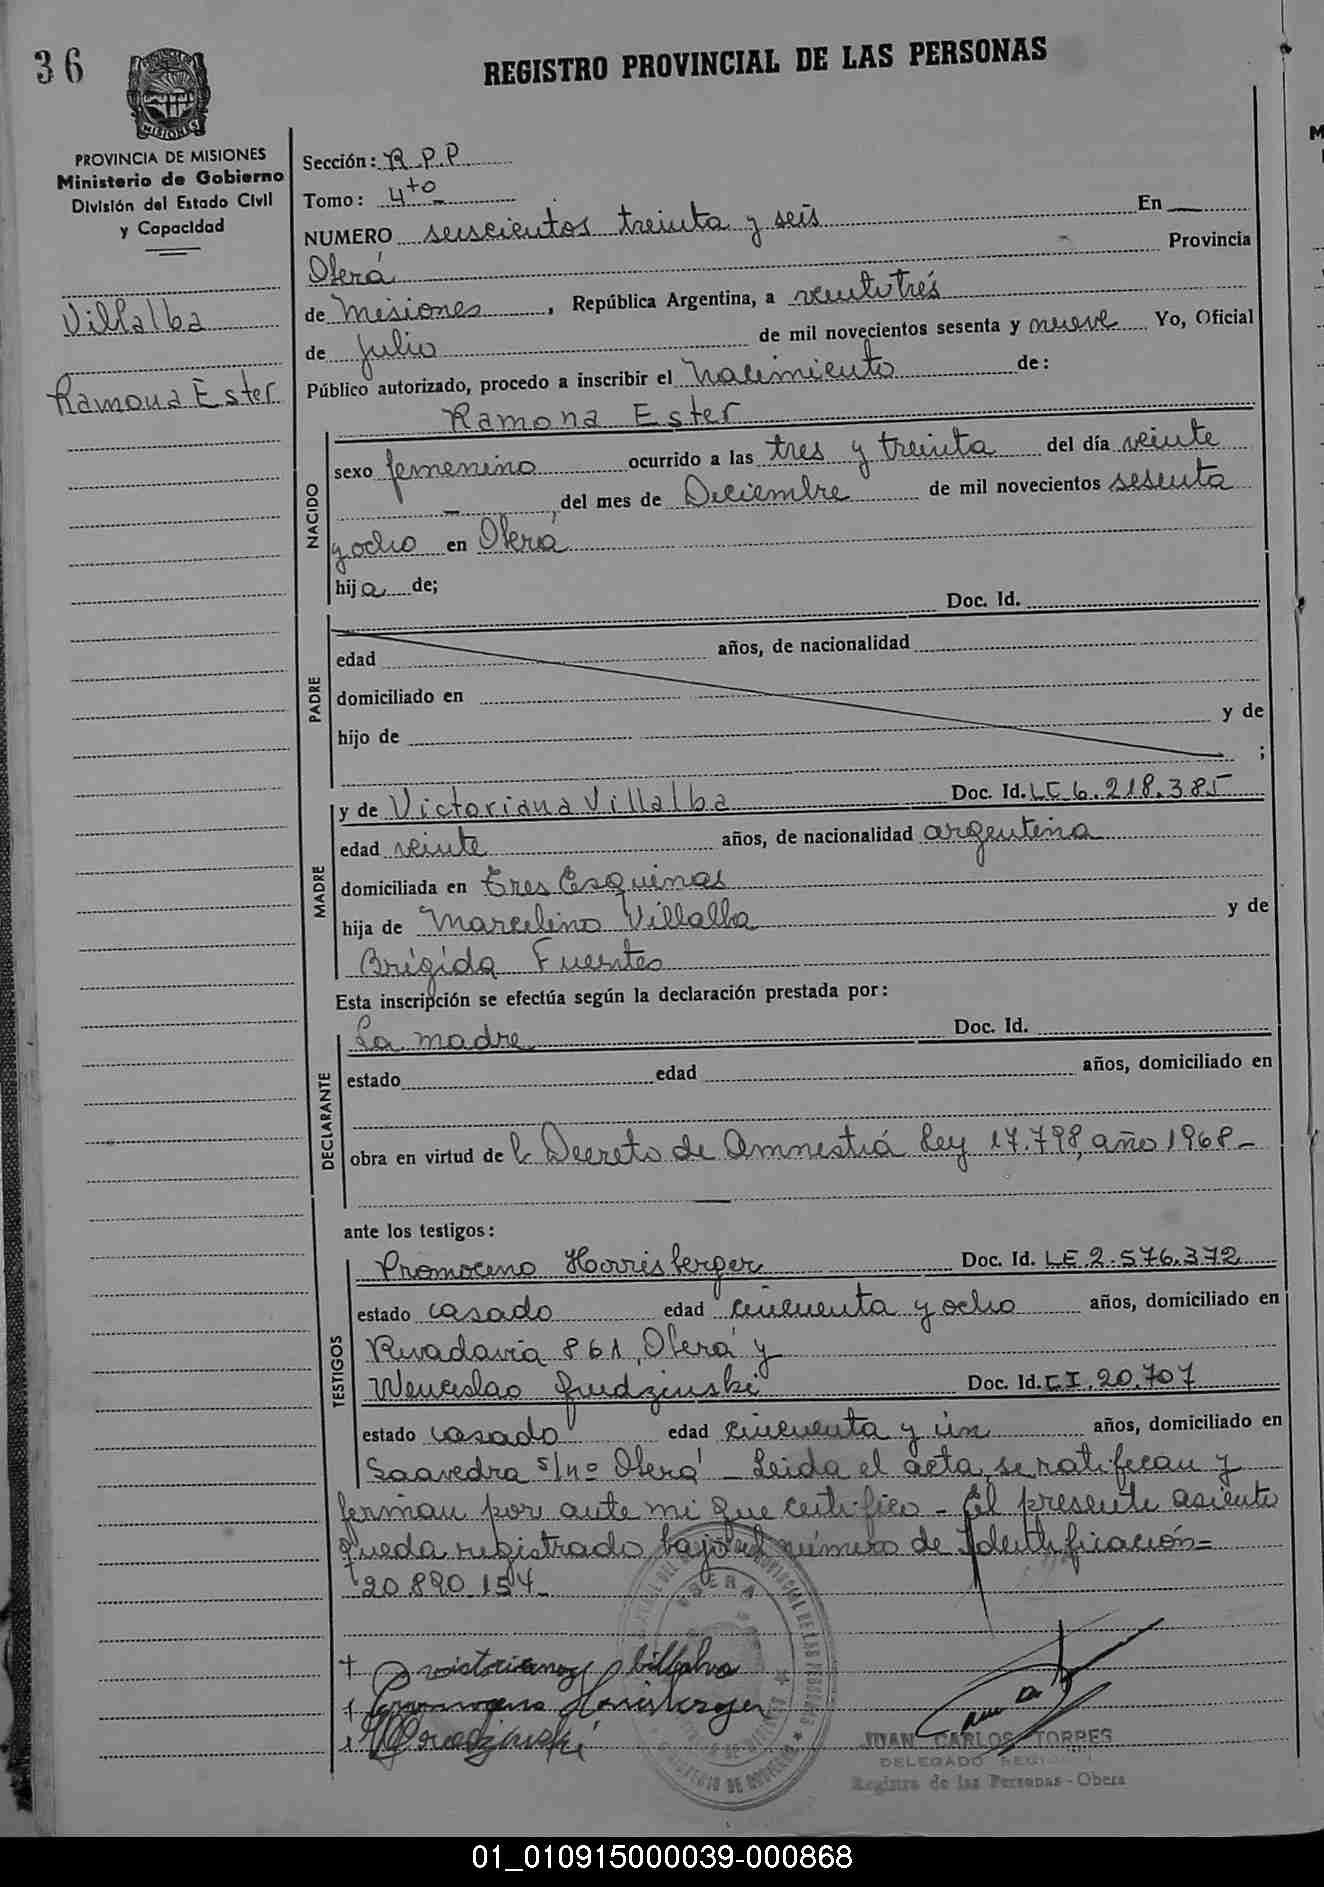 36
REGISTRO PROVINCIAL DE LAS PERSONAS
MISIONES
PROVINCIA DE MISIONES
Ministerio de Gobierno
División del Estado Civil
y Capacidad
Villalba
Ramona Ester
Sección: R.P.P
Tomo: 4to
NUMERO seiscientos treinta y seis En
Oberá Provincia
de Misiones, República Argentina, a veintitrés
de Julio de mil novecientos sesenta y nueve Yo, Oficial
Público autorizado, procedo a inscribir el nacimiento de:
Ramona Ester
NACIDO
sexo femenino ocurrido a las tres y treinta del día veinte
del mes de Diciembre de mil novecientos sesenta
y ocho en Oberá
hija de;
PADRE
Doc. Id.
edad años, de nacionalidad
domiciliado en
hijo de y de
;
MADRE
y de Victoriana Villalba Doc. Id. LC 6.218.385
edad veinte años, de nacionalidad argentina
domiciliada en Tres Esquinas
hija de Marcelino Villalba y de
Brígida Fuentes
Esta inscripción se efectúa según la declaración prestada por:
DECLARANTE
La madre Doc. Id.
estado edad años, domiciliado en
obra en virtud de Decreto de Amnestiá Ley 17.798, año 1968-
ante los testigos:
TESTIGOS
Promoceno Horrisberger Doc. Id. LE.2.576.372
estado casado edad cincuenta y ocho años, domiciliado en
Rivadavia 861, Oberá y
Wenceslao Doc. Id. C.I.20.707
estado casado edad cincuenta y ún años, domiciliado en
Saavedra s/nº Oberá - Leida el acta, se ratifican y
firman por ante mi que certifico - El presente asiento
queda registrado bajo el número de Identificación=
20.890.154-
OBERA
JUAN CARLOS TORRES
DELEGADO
Registro de las Personas - Obera
01_010915000039-000868